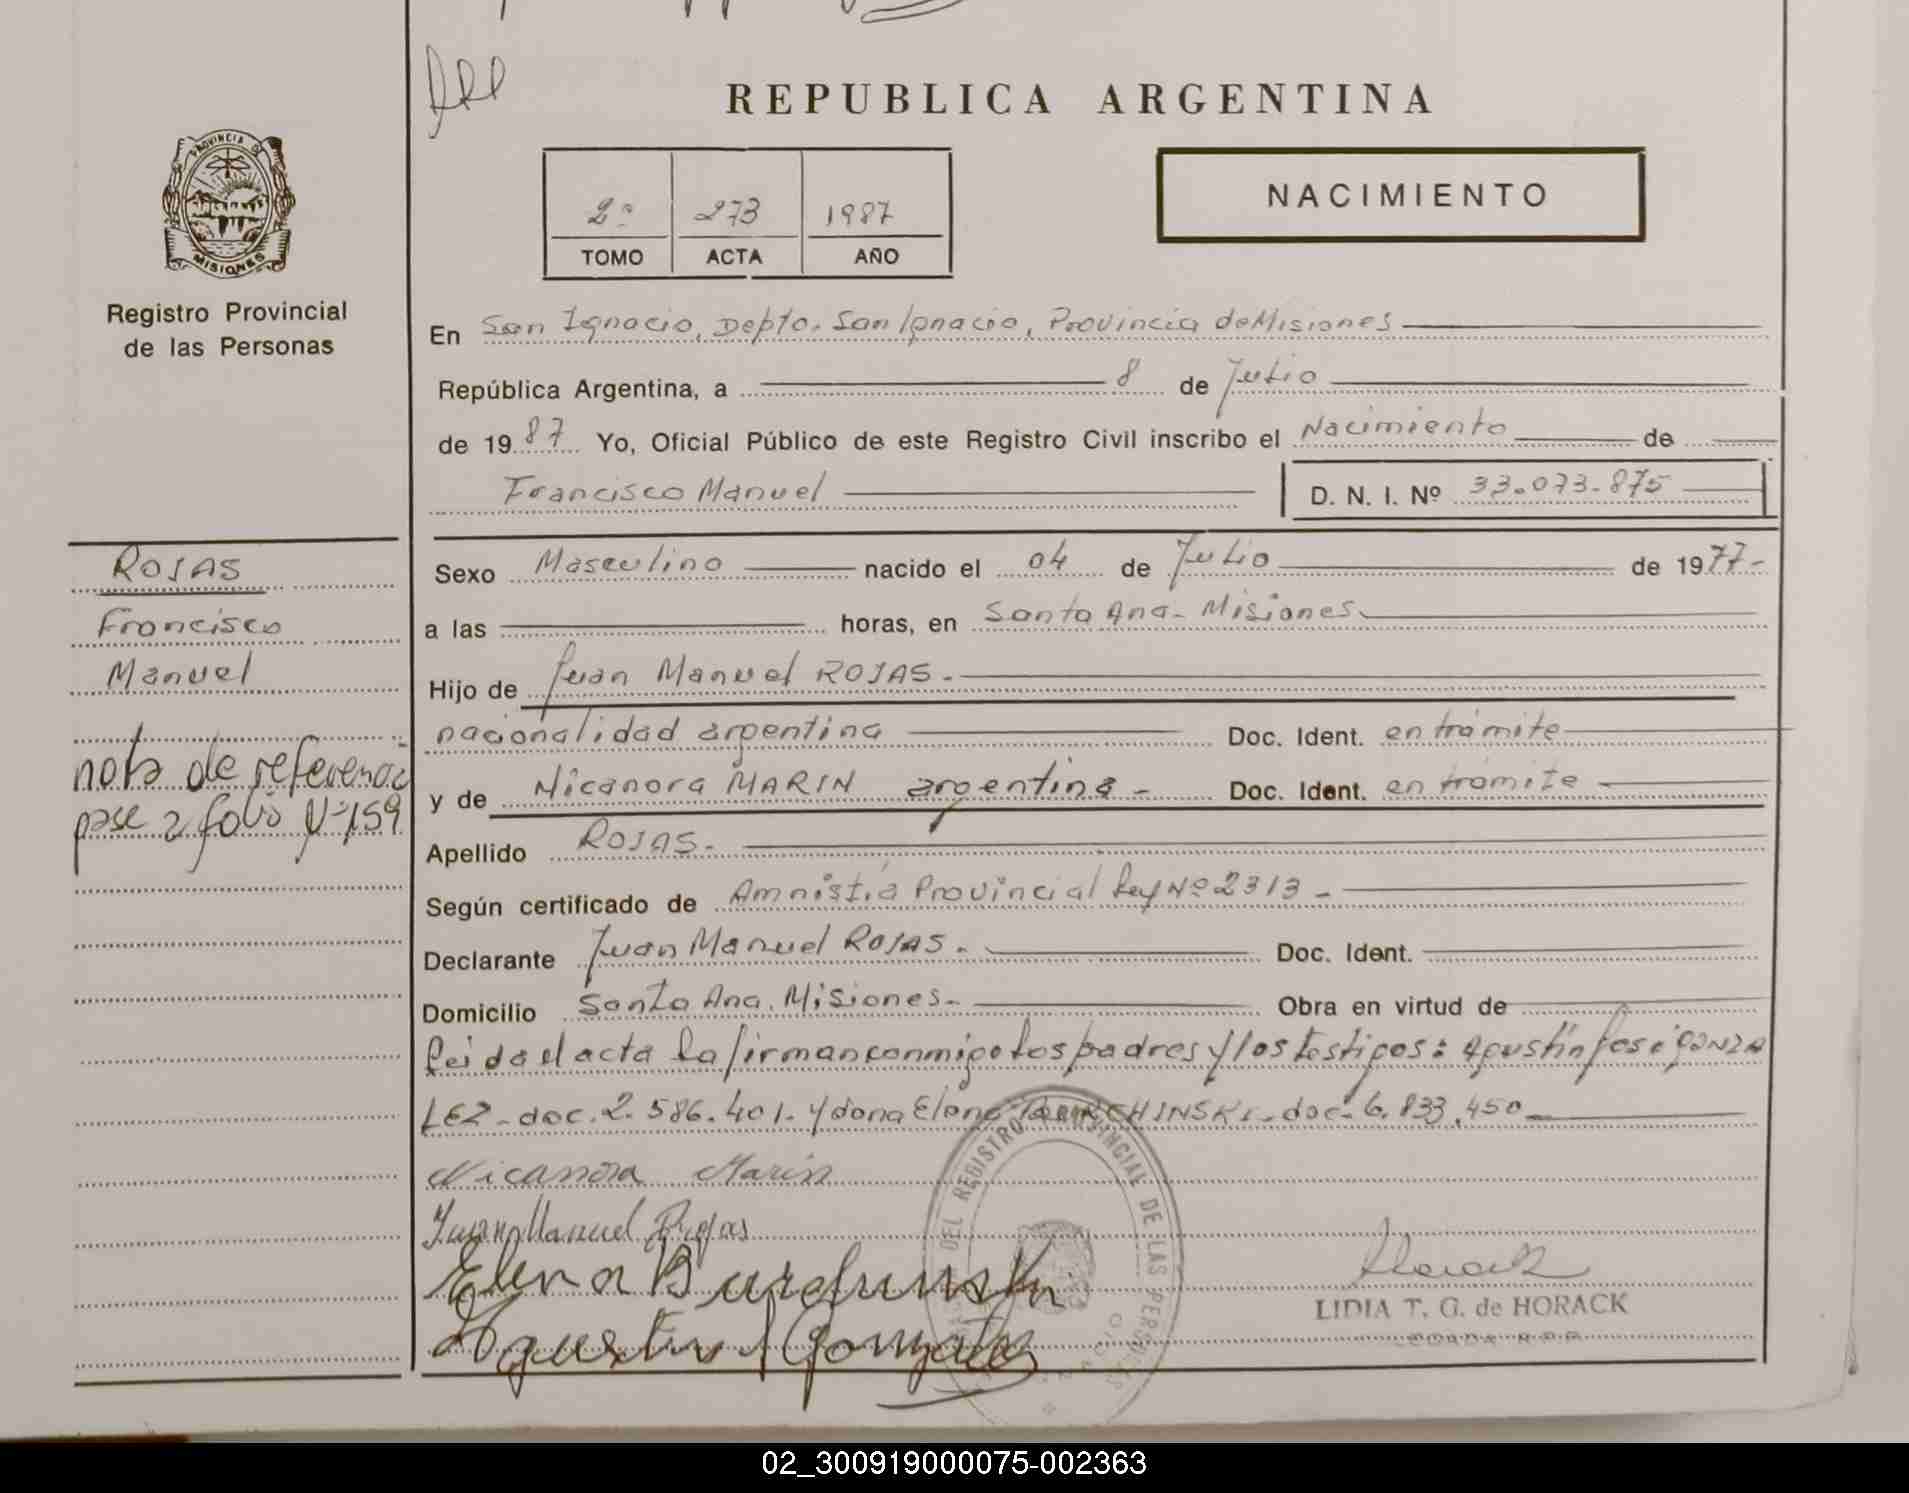 REPUBLICA ARGENTINA
PROVINCIA D
MISIONES
Registro Provincial
de las Personas
2º 273 1987
TOMO ACTA AÑO
NACIMIENTO
En San Ignacio, Depto. San Ignacio, Provincia de Misiones
República Argentina, a 8 de Julio
de 1987 Yo, Oficial Público de este Registro Civil inscribo el Nacimiento de
Francisco Manuel D. N. I. Nº 33.073.875
ROJAS
Francisco
Manuel
nota de referencia
pase a folio Nº 159
Sexo Masculino nacido el 04 de Julio de 1977-
a las horas, en Santa Ana- Misiones
Hijo de Juan Manuel ROJAS.-
nacionalidad argentina Doc. Ident. en trámite
y de Nicanora MARIN argentina - Doc. Ident. en trámite
Apellido ROJAS.-
Según certificado de Amnistía Provincial Ley Nº 2313 -
Declarante Juan Manuel ROJAS. Doc. Ident.
Domicilio Santa Ana. Misiones.- Obra en virtud de
Leida el acta la firman conmigo los padres y los testigos: Agustín José GONZA
LEZ - doc. 2.586.401. y dona Elena - doc. 6.833.450
Nicanora Marin
Juan Manuel Rojas
Elena
Agustin J Gonzalez
DEL REGISTRO PROVINCIAL DE LAS PERSONAS
LIDIA T. G. de HORACK
02_300919000075-002363